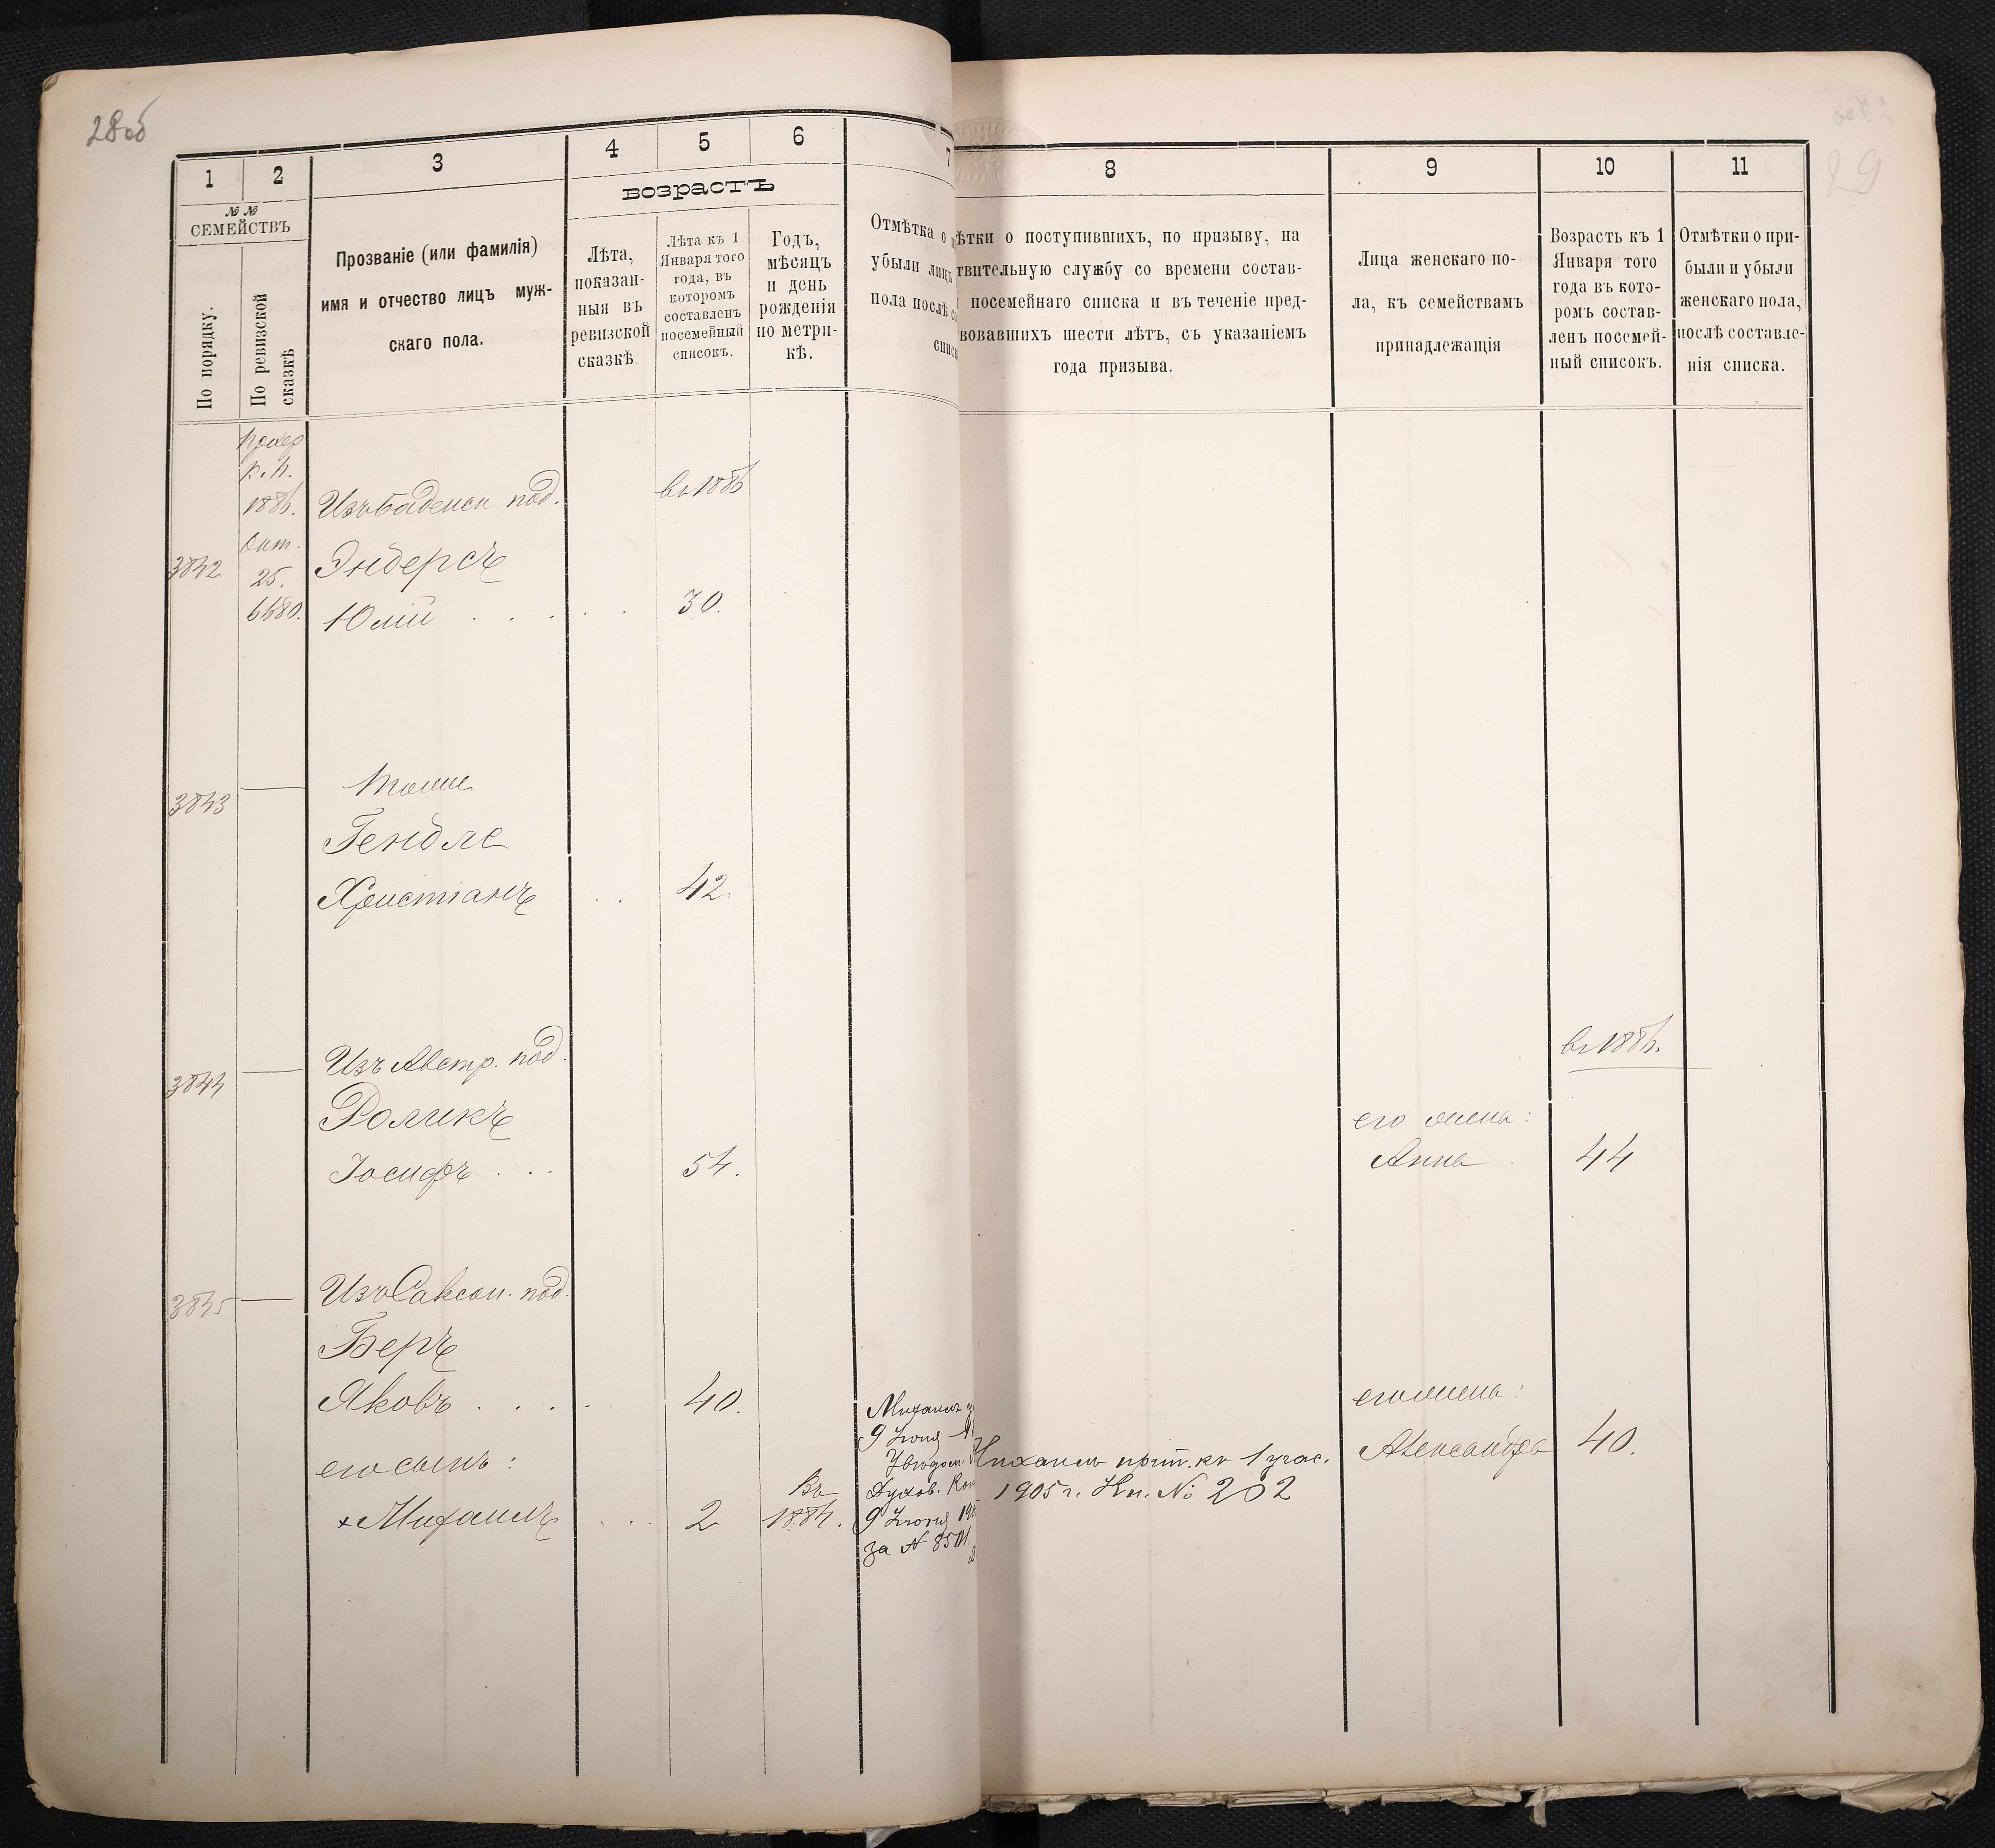 28об
1
2
3
4
5
6
7
№ №
СЕМЕЙСТВЪ
По порядку.
По ревизской
сказкѣ
Прозваніе (или фамилія)
имя и отчество лицъ муж-
скаго пола.
возрастъ
Лѣта,
показан-
ныя въ
ревизской
сказкѣ
Лѣта къ 1
Января того
года, въ
котормъ
составленъ
посемейный
списокъ.
Годъ,
мѣсяцъ
и день
рожденія
по метри-
кѣ.
Отмѣтка о
убыли лицъ
пола послѣ
к. п.
1886.
Окт.
25.
6680.
3842
Изъ Баденск под.
Эндерсъ
Юлій
въ 1886
30.
3843
Тоже
Гендле
Христіанъ
42.
3844
Изъ Австр. под.
Роликъ
Іосифъ
54.
3845
Изъ Саксон. под.
Беръ
Яковъ
40.
его сынъ:
× Михаилъ
2
Въ
1884.
Михаилъ
9 Іюня
Духов.
9 Іюня
за №
29
8
9
10
11
ѣтки о поступившихъ, по призыву, на
твительную службу со времени состав-
посемейнаго списка и въ теченіе пред-
вовавшихъ шести лѣтъ, съ указаніемъ
года призыва.
Лица женскаго по-
ла, къ семействамъ
принадлежащія
Возрастъ къ 1
Января того
года въ кото-
ромъ состав-
ленъ посемей-
ный списокъ.
Отмѣтки о при-
были и убыли
женскаго пола,
послѣ составле-
нія списка.
въ 1886.
его жена:
Анна
44
его жена:
Александра
40.
Михаилъ прип. къ 1 учас.
1905 г. Кн. № 202